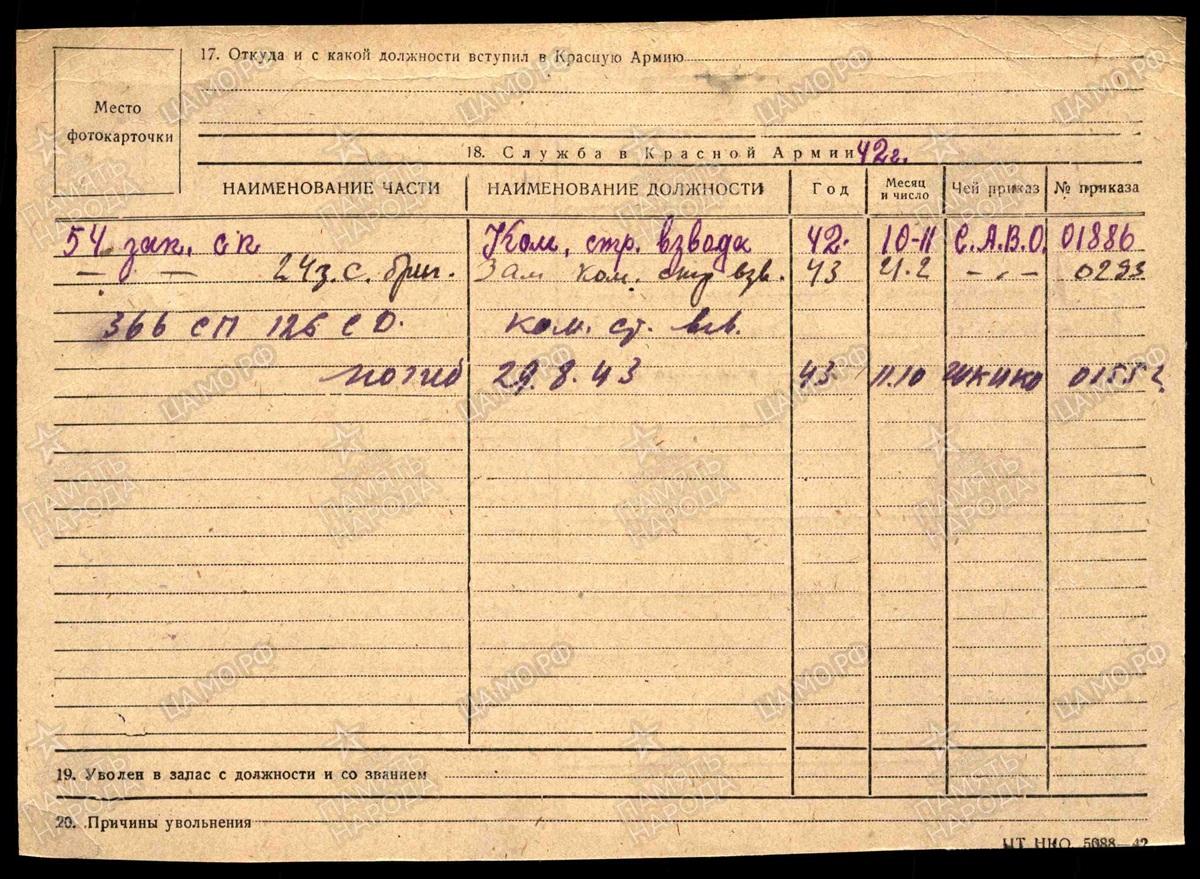 17. Откуда и с какой должности вступил в Красную Армию
Место
фотокарточки
18. Служба в Красной Армии 42 г.
НАИМЕНОВАНИЕ ЧАСТИ НАИМЕНОВАНИЕ ДОЛЖНОСТИ Год Месяц и число Чей приказ № приказа
54 зап. сп Ком. стр. взвода 42. 10-11 С.А.В.О. 01886
— — 24 з.с. бриг. Зам ком. стр взв. 43 21.2 - „ - 0293
366 СП 126 СД. ком. ст. взв.
погиб 29.8.43 43 11.10 0155
19. Уволен в запас с должности и со званием
20. Причины увольнения
ЦТ НКО 5088—42
ЦАМО.РФ
ПАМЯТЬ НАРОДА